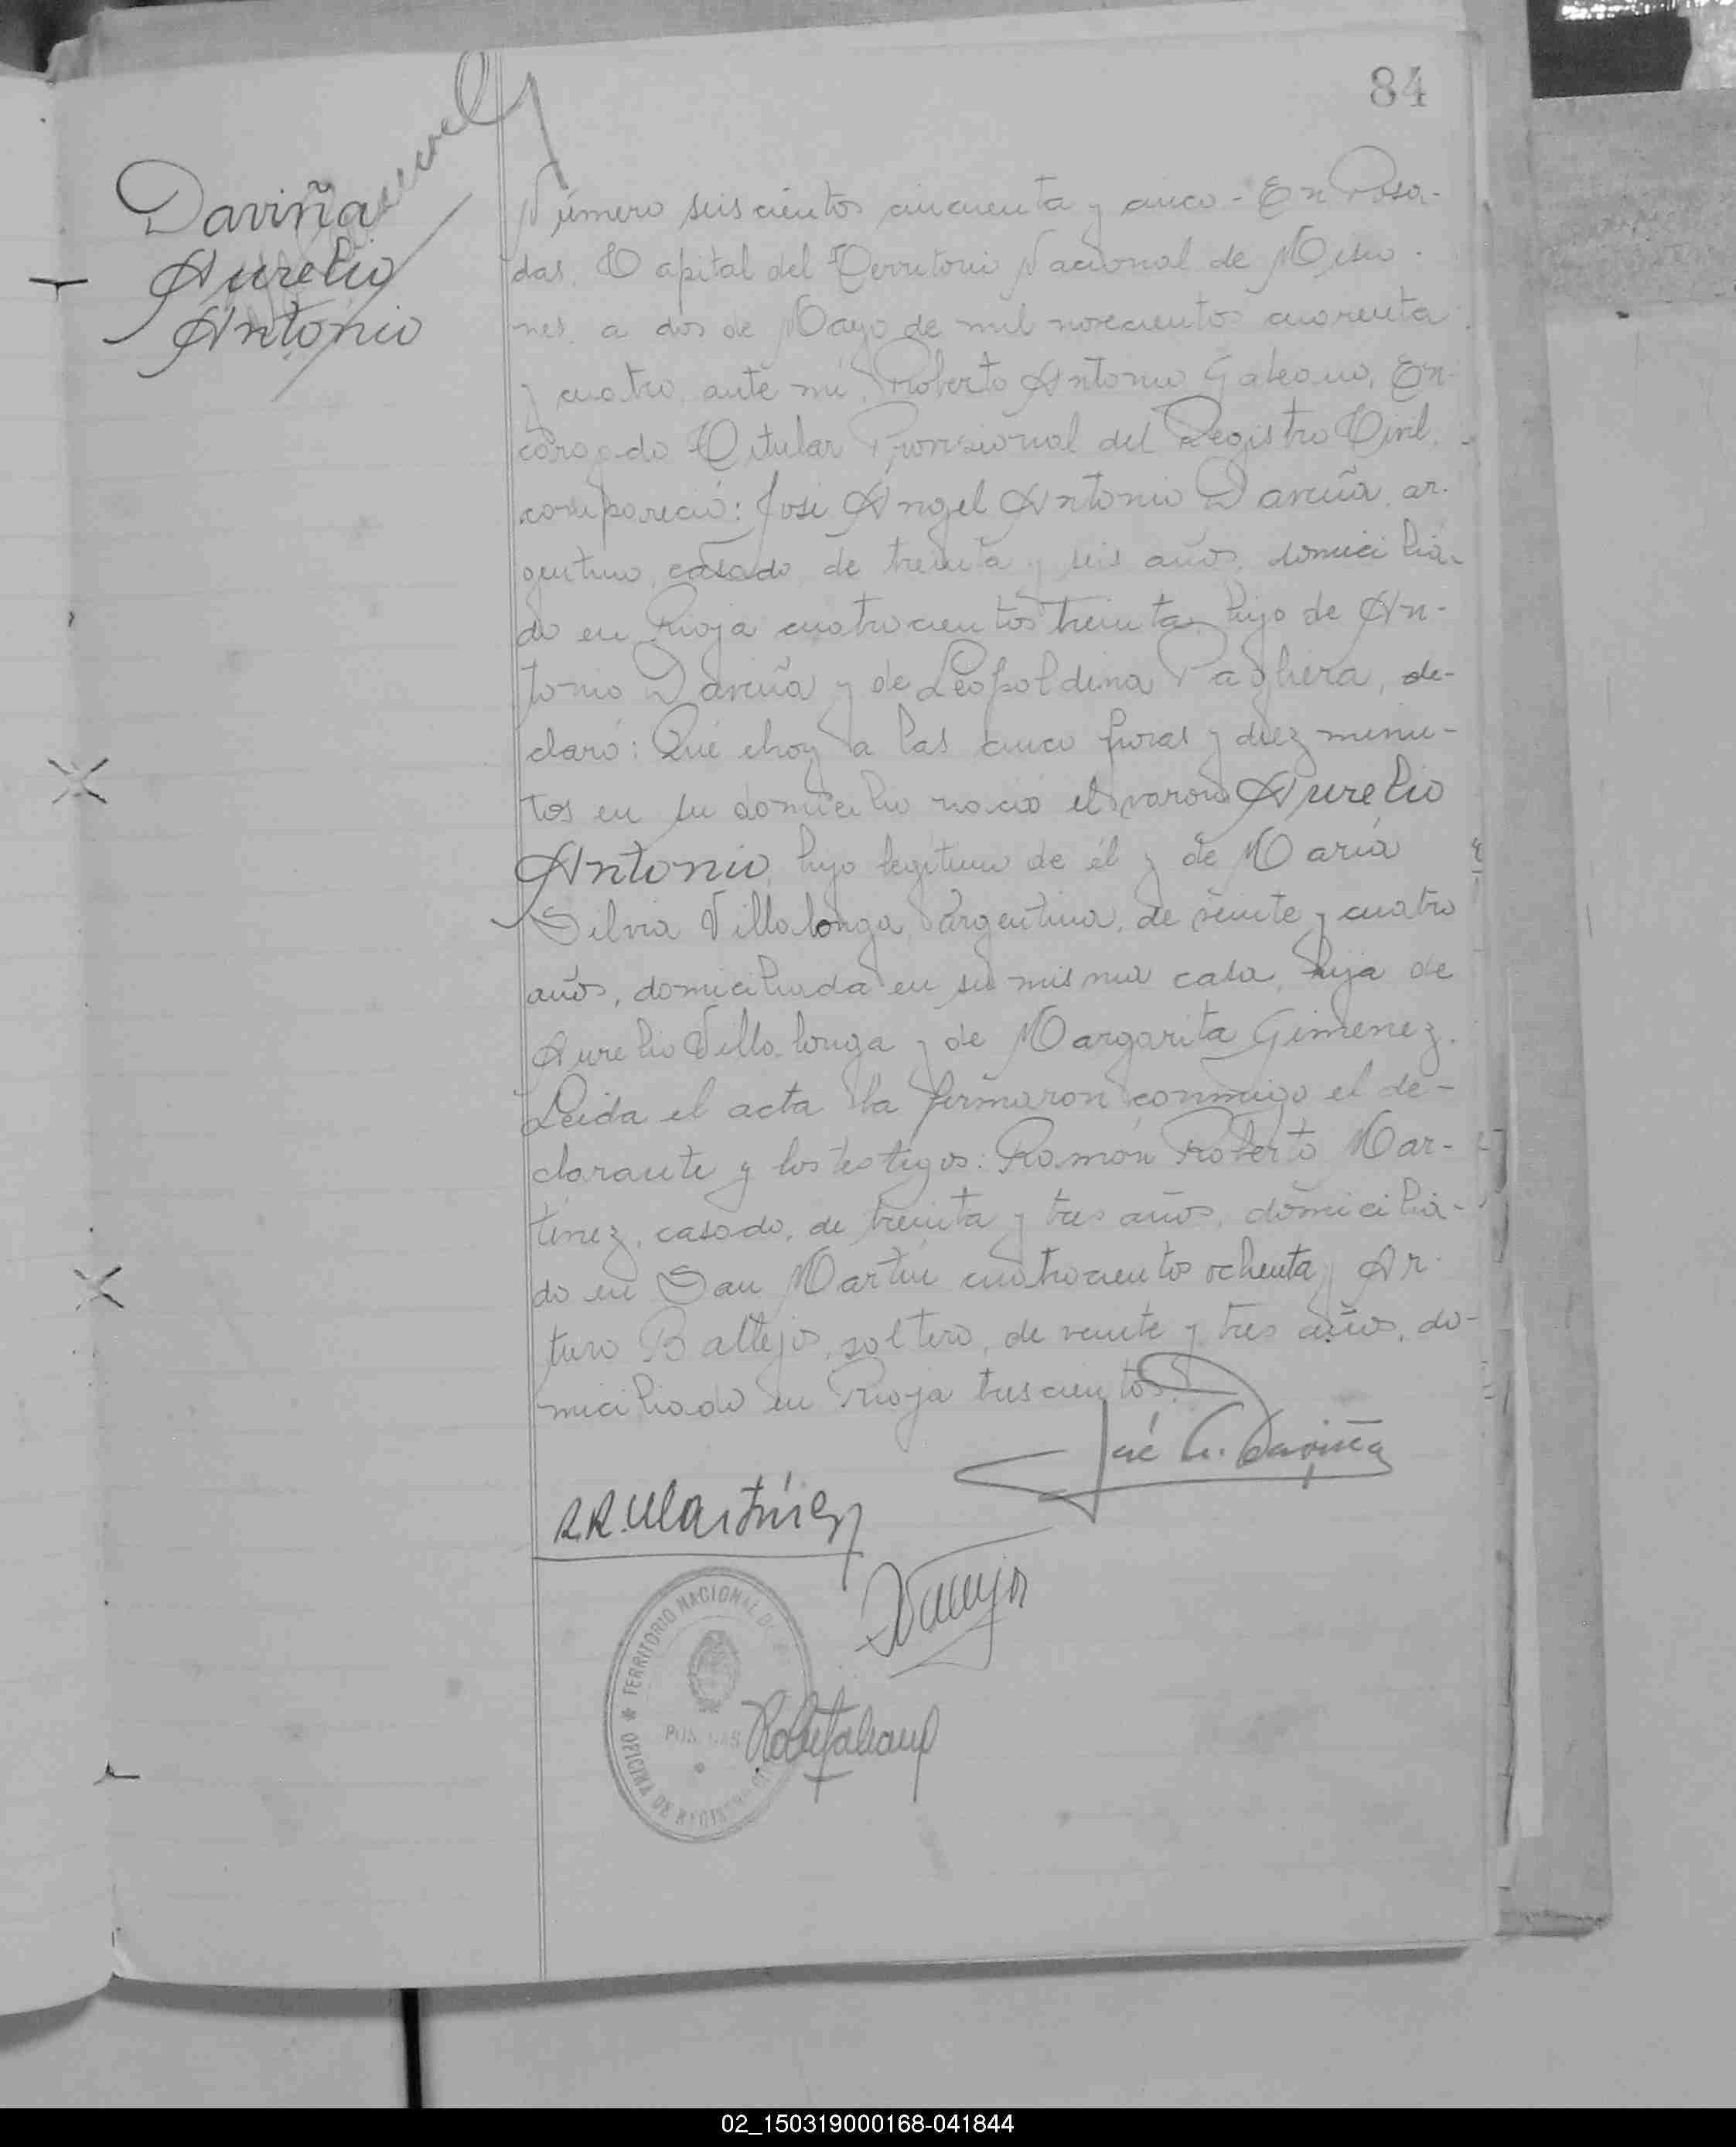 84
Daviña
Aurelio
Antonio
Número seiscientos cincuenta y cinco - En Posa-
das, Capital del Territorio Nacional de Misio-
nes, a dos de Mayo de mil novecientos cuarenta
y cuatro, ante mí, Roberto Antonio Galeano, En-
cargado Titular Provisional del Registro Civil,
compareció: José Angel Antonio Daviña, ar-
gentino, casado, de treinta y seis años, domicilia-
do en Rioja cuatrocientos treinta, hijo de An-
tonio Daviña y de Leopoldina Paghera, de-
claró: Que hoy a las cinco horas y diez minu-
tos en su domicilio nació el varón Aurelio
Antonio, hijo legítimo de él y de María
Silvia Villalonga, argentina, de veinte y cuatro
años, domiciliada en su misma casa, hija de
Aurelio Villalonga y de Margarita Gimenez.
Leida el acta la firmaron conmigo el de-
clarante y los testigos: Ramón Roberto Mar-
tínez, casado, de treinta y tres años, domicilia-
do en San Martín cuatrocientos ochenta y Ar-
turo Vallejos, soltero, de veinte y tres años, do-
miciliado en Rioja trescientos.
José A. Daviña
R.R. Martínez
TERRITORIO NACIONAL DE
POSADAS
OFICINA DE REGISTRO
02_150319000168-041844